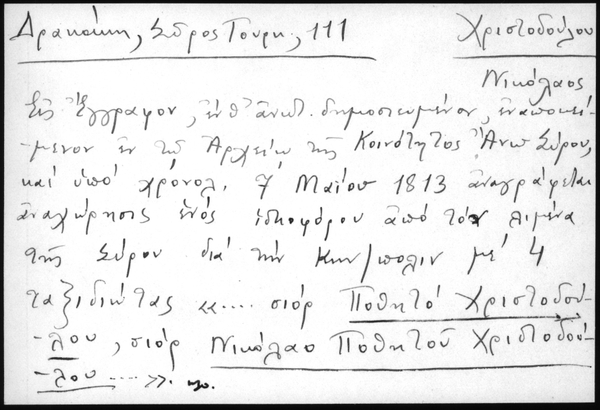 Δρακάκη, Σῦρος Τουρκ., 111 Χριστοδούλου
Νικόλαος
Εἰς Ἔγγραφον, ἔνθ' ἀνωτ. δημοσιευμένον, ἐναποκεί-
μενον ἐν τῷ Ἀρχείῳ τῆς Κοινότητος Ἄνω Σύρου,
καί ὑπό χρονολ. 7 Μαΐου 1813 ἀναγράφεται
ἀναχώρησις ἑνός ἰδιοφόρου ἀπό τόν λιμένα
τῆς Σύρου διά τήν Κων/πολιν μέ 4
ταξιδιώτας «.... σιόρ Ποθητό Χριστοδού-
-λου, σιόρ Νικόλαο Ποθητοῦ Χριστοδού-
-λου ....».